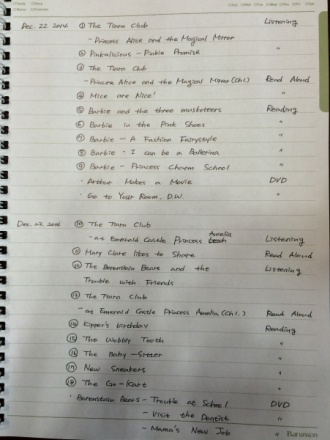 Dec. 22. 2014 ① The Tiara Club Listening
- Princess Alice and the Magical Mirror
② Pinkalicious - Pinkie Promise "
③ The Tiara Club
- Princess Alice and the Magical Mirror (Ch1.) Read Aloud
④ Mice are Nice! "
⑤ Barbie and the three musketeers Reading
⑥ Barbie in the Pink Shoes "
⑦ Barbie - A Fashion Fairystyle "
⑧ Barbie - I can be a Ballerina "
⑨ Barbie - Princess Charm School "
· Arthur Makes a Movie DVD
· Go to Your Room, D.W. "
Dec. 23. ⑩ The Tiara Club
- at Emerald Castle Princess Amelia Listening
⑪ Mary Clare likes to Share Read Aloud
⑫ The Berenstain Bears and the Listening
Trouble with Friends
⑬ The Tiara Club
- at Emerald Castle Princess Amelia (Ch1.) Read Aloud
⑭ Kipper's birthday Reading
⑮ The Wobbly Tooth "
⑯ The Baby-sitter "
⑰ New Sneakers "
⑱ The Go-Kart "
· Berenstain Bears - Trouble at School DVD
- Visit the Dentist "
- Mama's New Job "
Barunson